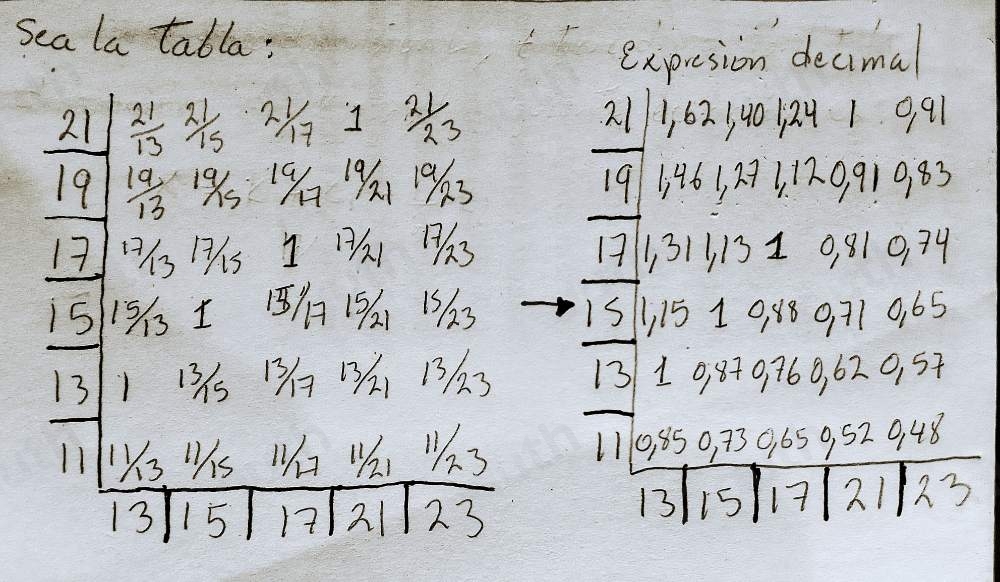 Sea la tabla:
Expresión decimal
21 21/13 21/15 21/17 1 21/23
19 19/13 19/15 19/17 19/21 19/23
17 17/13 17/15 1 17/21 17/23
15 15/13 1 15/17 15/21 15/23
13 1 13/15 13/17 13/21 13/23
11 11/13 11/15 11/17 11/21 11/23
13 15 17 21 23
21 1,62 1,40 1,24 1 0,91
19 1,46 1,27 1,12 0,91 0,83
17 1,31 1,13 1 0,81 0,74
→ 15 1,15 1 0,88 0,71 0,65
13 1 0,87 0,76 0,62 0,57
11 0,85 0,73 0,65 0,52 0,48
13 15 17 21 23